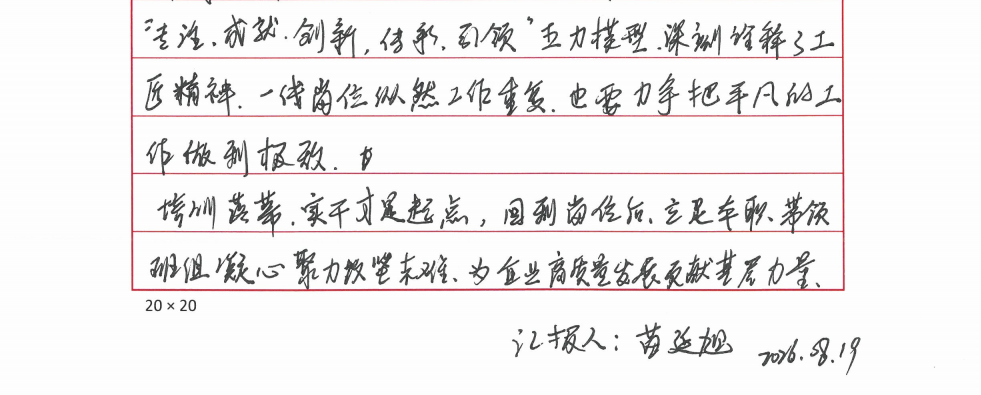 “专注、成就、创新、传承、引领”五力模型、深刻诠释了工
匠精神、一线岗位纵然工作重复、也要力争把平凡的工
作做到极致、
培训落幕、实干才是起点，回到岗位后、立足本职、带领
班组凝心聚力攻坚克难、为企业高质量发展贡献基层力量、
20 × 20
汇报人：苗延旭 2026.08.19